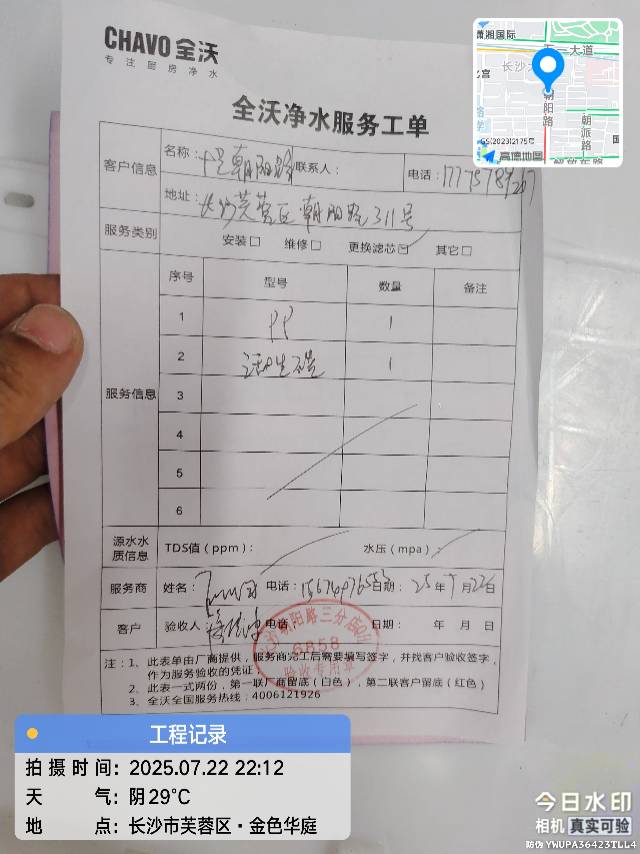 CHAVO 全沃
专注厨房净水
全沃净水服务工单
客户信息 名称： 朝阳 联系人： 电话：
地址：长沙芙蓉区朝阳路311号
服务类别 安装□ 维修□ 更换滤芯☑ 其它□
服务信息 序号 型号 数量 备注
1 PP 1
2 活性炭 1
3
4
5
6
源水水质信息 TDS值（ppm）： 水压（mpa）：
服务商 姓名： 电话： 日期：25年7月22日
客户 验收人 电话 日期： 年 月 日
朝阳路三分店
6858
验收专用章
注：1、此表单由厂商提供，服务商完工后需要填写签字，并找客户验收签字，
作为服务验收的凭证
2、此表一式两份，第一联厂商留底（白色），第二联客户留底（红色）
3、全沃全国服务热线：4006121926
潇湘国际
五一大道
朝阳路
朝派路
GS(2023)2175号
高德地图
工程记录
拍摄时间：2025.07.22 22:12
天 气：阴29℃
地 点：长沙市芙蓉区·金色华庭
今日水印
相机 真实可验
防伪 YWUPA36423TLL4